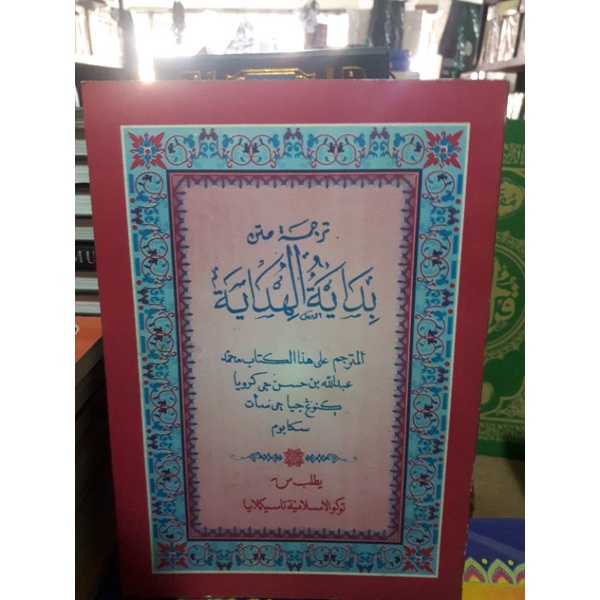 ترجمة متن
بداية الهداية
المترجم على هذا الكتاب محمد
عبدالله بن حسن جي كرويا
كنوڠ جيا جي سأت
سكابوم
يطلب من
توكو الاسلامية تاسيكملايا